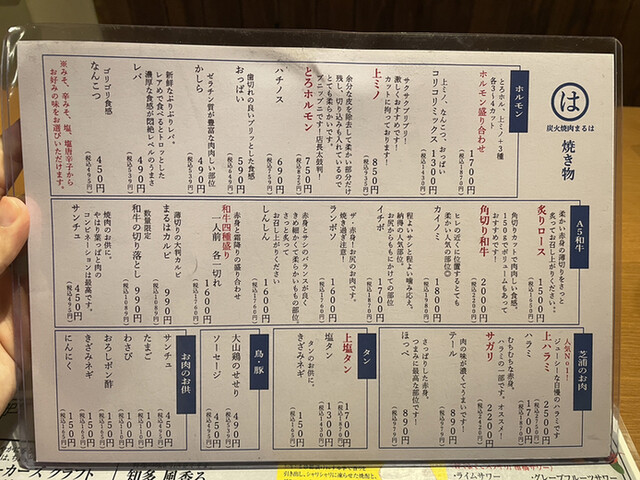 は
炭火焼肉まるは
焼き物
ホルモン
ホルモン盛り合わせ
1700円
(税込1870円)
とろホル、上ミノ+3種
各3~4カット
コリコリミックス
1300円
(税込1430円)
上ミノ、なんこつ、おっぱい
上ミノ
850円
(税込935円)
サクサクプリプリ!
激しくおすすめです!
カットに拘っております!
とろホルモン
750円
(税込825円)
余分な皮を除去して柔かい部分だけ
残し、切り込みも入れているので
とても柔らかいです。
ブニップニです!店長大鼓判!
ハチノス
690円
おっぱい
590円
歯切れの良いプリッとした食感
かしら
490円
ゼラチン質が豊富な肉肉しい部位
レバ
490円
新鮮なぷりぷりレバ。
レアめで食べるとトロッとした
濃厚な食感が悶絶レベルのうまさ
なんこつ
450円
(税込495円)
ゴリゴリ食感
※みそ、辛みそ、塩、塩唐辛子から
お好みの味をお選びいただけます。
A5和牛
炙りロース
1500円
柔かい赤身の薄切りをさっと
炙ってお召し上がりください。
角切り和牛
2000円
(税込2200円)
角切りカットで肉肉しい食感。
150gでボリュームもあって
おすすめです!
カイノミ
1800円
(税込1980円)
ヒレの近くに位置するとても
柔かい人気の部位◎
イチボ
1700円
(税込1870円)
程よいサシと程よい噛み応え。
納得の人気部位。
お尻からももにかけての部位
ランボソ
1600円
(税込1760円)
ザ・赤身!お尻のお肉です。
焼き過ぎ注意!
しんしん
1600円
(税込1760円)
赤身とサシのバランスが良く
きめ細かくて柔らかいももの部位。
さっと炙って
お召し上がりください
和牛四種盛り
一人前 各一切れ
1600円
赤身と霜降りの盛り合わせ
まるはカルビ
990円
(税込1089円)
薄切りの大判カルビ
和牛の切り落とし
990円
(税込1089円)
数量限定
サンチュ
450円
(税込495円)
焼肉のお供に。
やはり葉っぱと肉の
コンビネーションは最高です。
芝浦のお肉
上ハラミ
人気No1!
ジューシーな自慢のハラミです
ハラミ
1700円
(税込1870円)
サガリ
2200円
(税込2420円)
むちむちな赤身。
ハラミの一部です。オススメ!
テール
890円
(税込979円)
肉の味が濃くてうまいです!
ほっぺ
890円
(税込979円)
さっぱりした赤身。
つまみに最高な部位です!
タン
上塩タン
1700円
塩タン
1300円
(税込1430円)
きざみネギ
150円
(税込165円)
タンのお供に。
鳥・豚
大山鶏のせせり
ソーセージ
お肉のお供
サンチュ
450円
(税込495円)
たまご
わさび
おろしポン酢
きざみネギ
150円
(税込165円)
にんにく
150円
(税込165円)
カーズ クラフト
知多 風香る
・ライムサワー
・グレープフルーツサワー